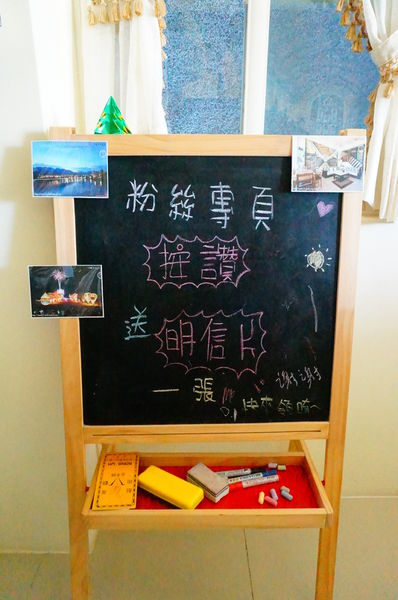 粉絲專頁
按讚
送
明信片
一張
謝謝
快來領唷~